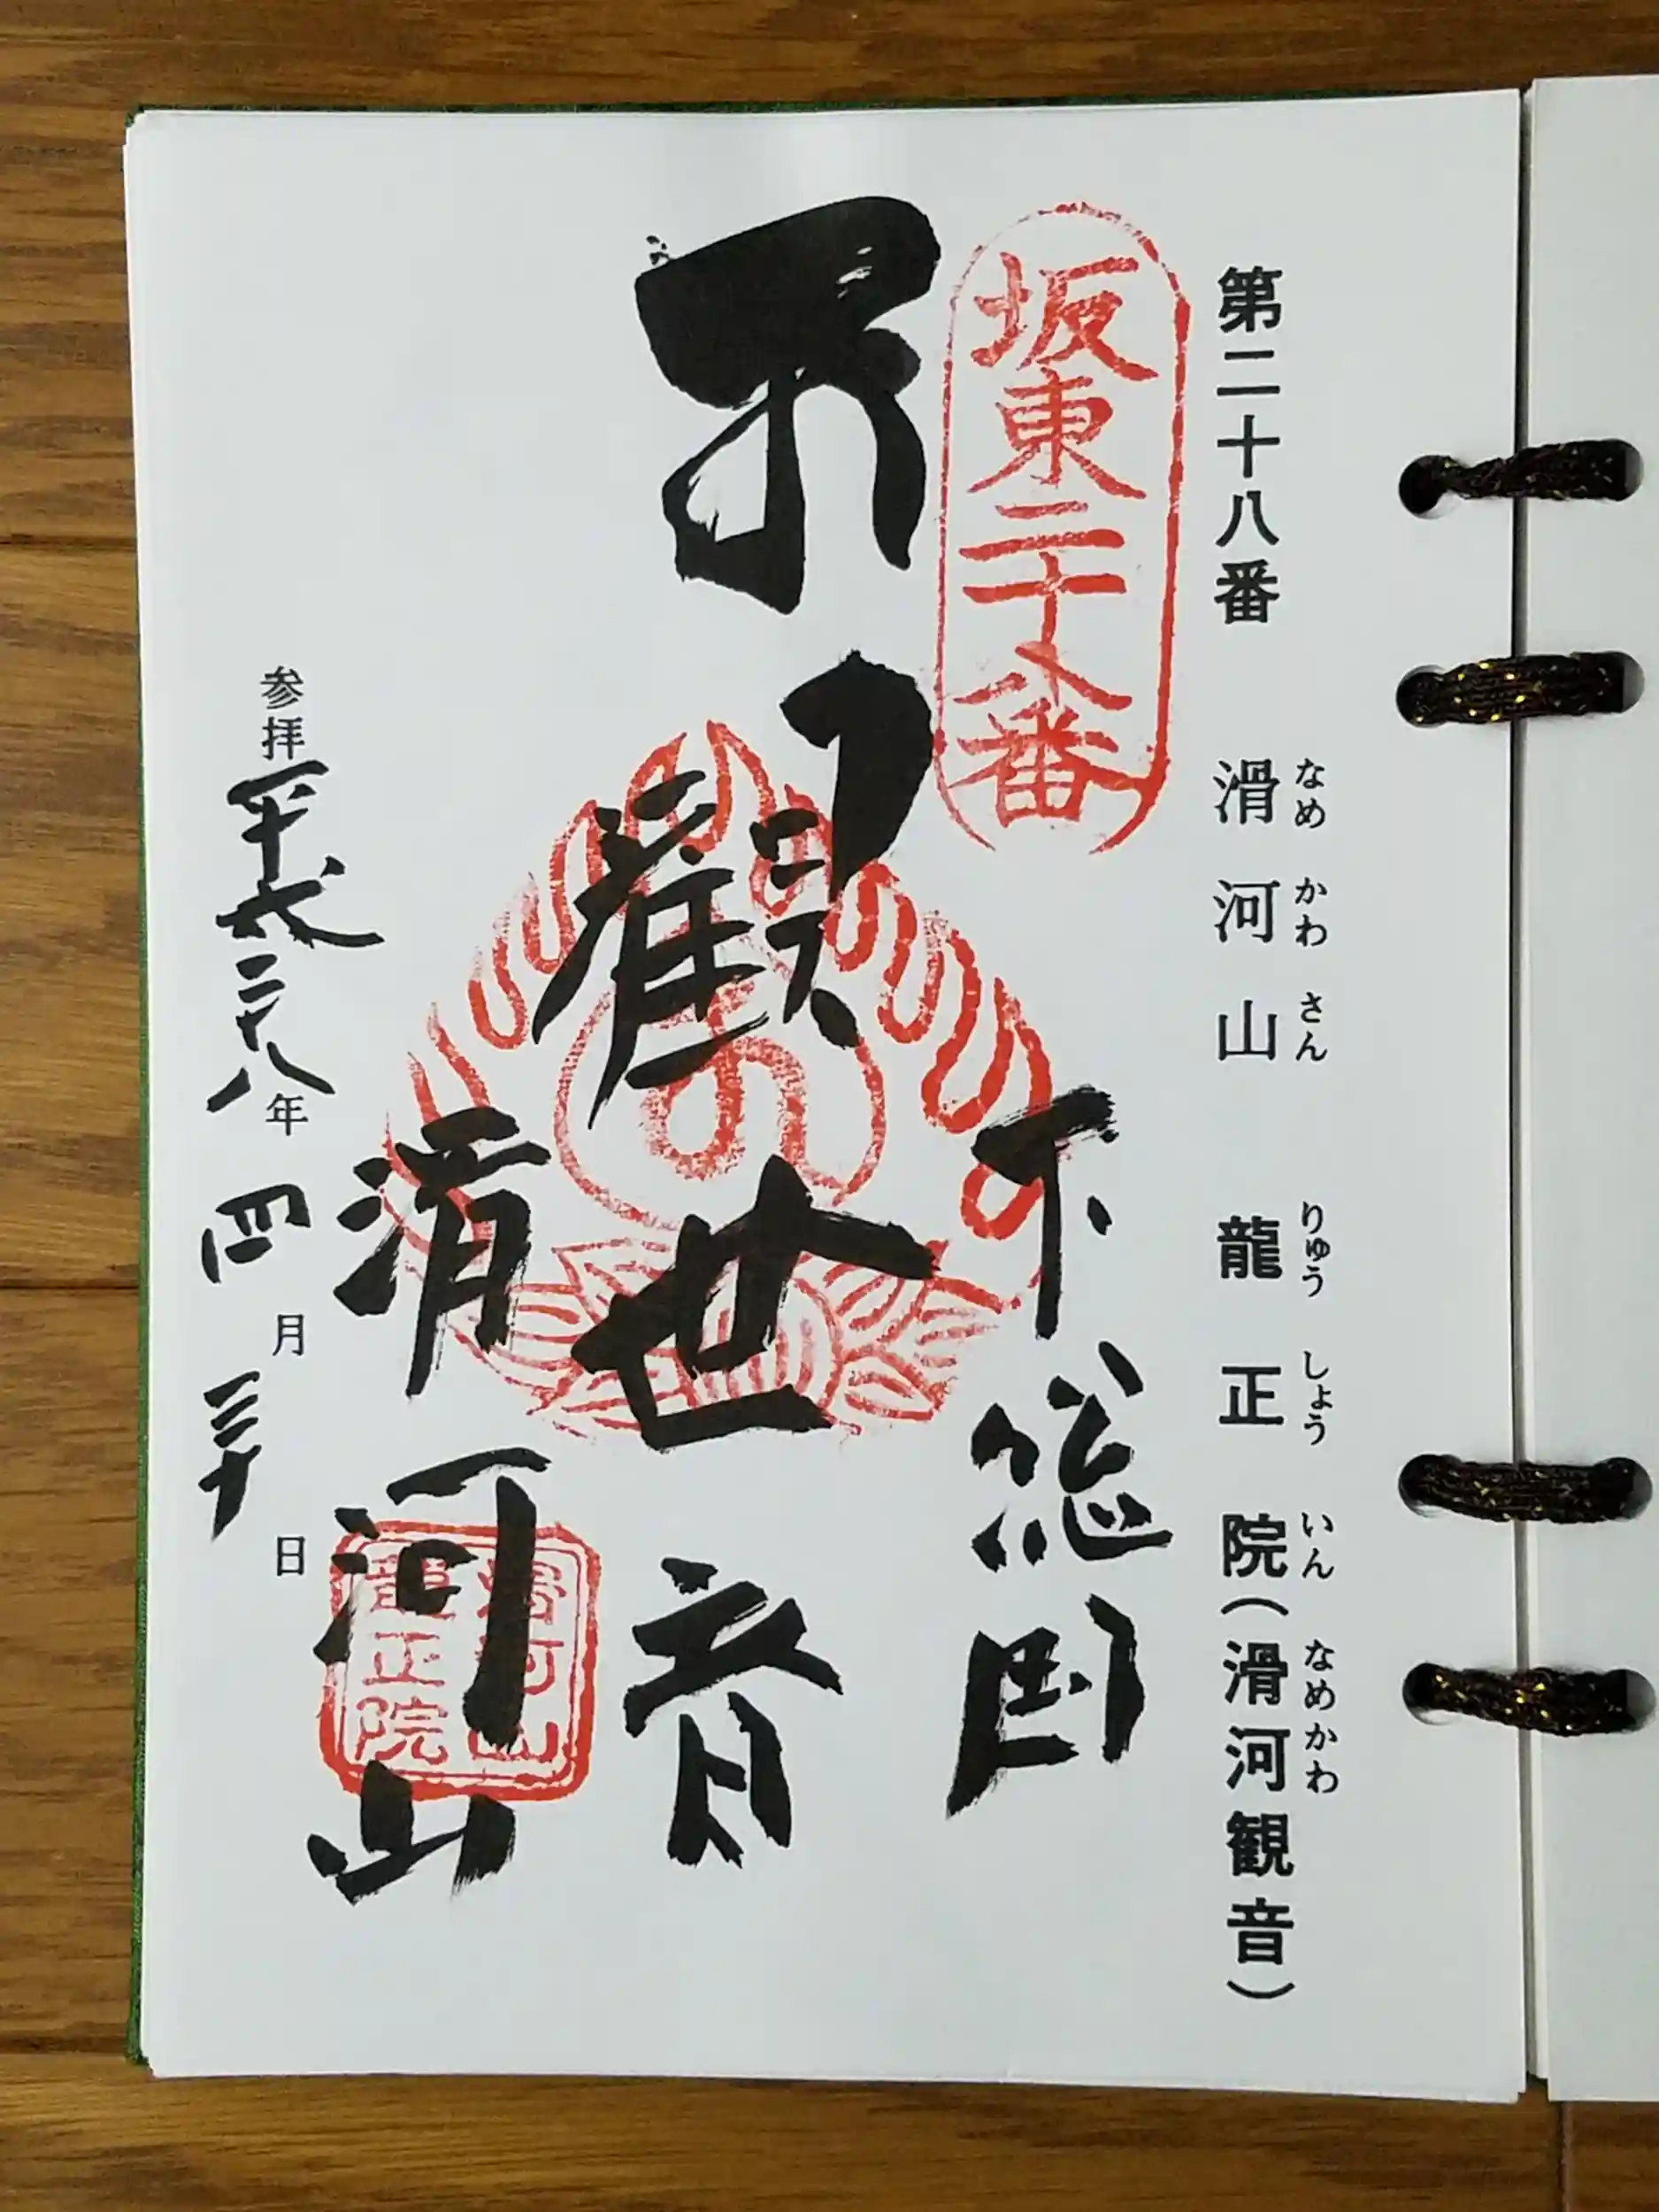 第二十八番 滑河山 龍正院(滑河観音)
なめかわさん りゅうしょういん なめかわ
坂東二十八番
下総国
観世音
滑河山
滑河山
龍正院
参拝 平成二十八年 四月 三十日